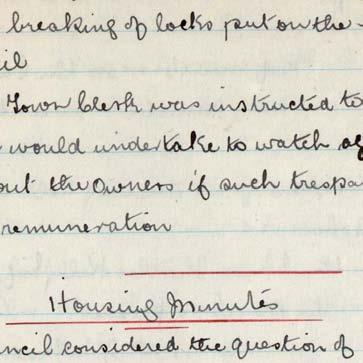 breaking of locks put on the
il
Town Clerk was instructed to
would undertake to watch ag
out the Owners if such trespa
remuneration
Housing Minutes
uncil considered the question of